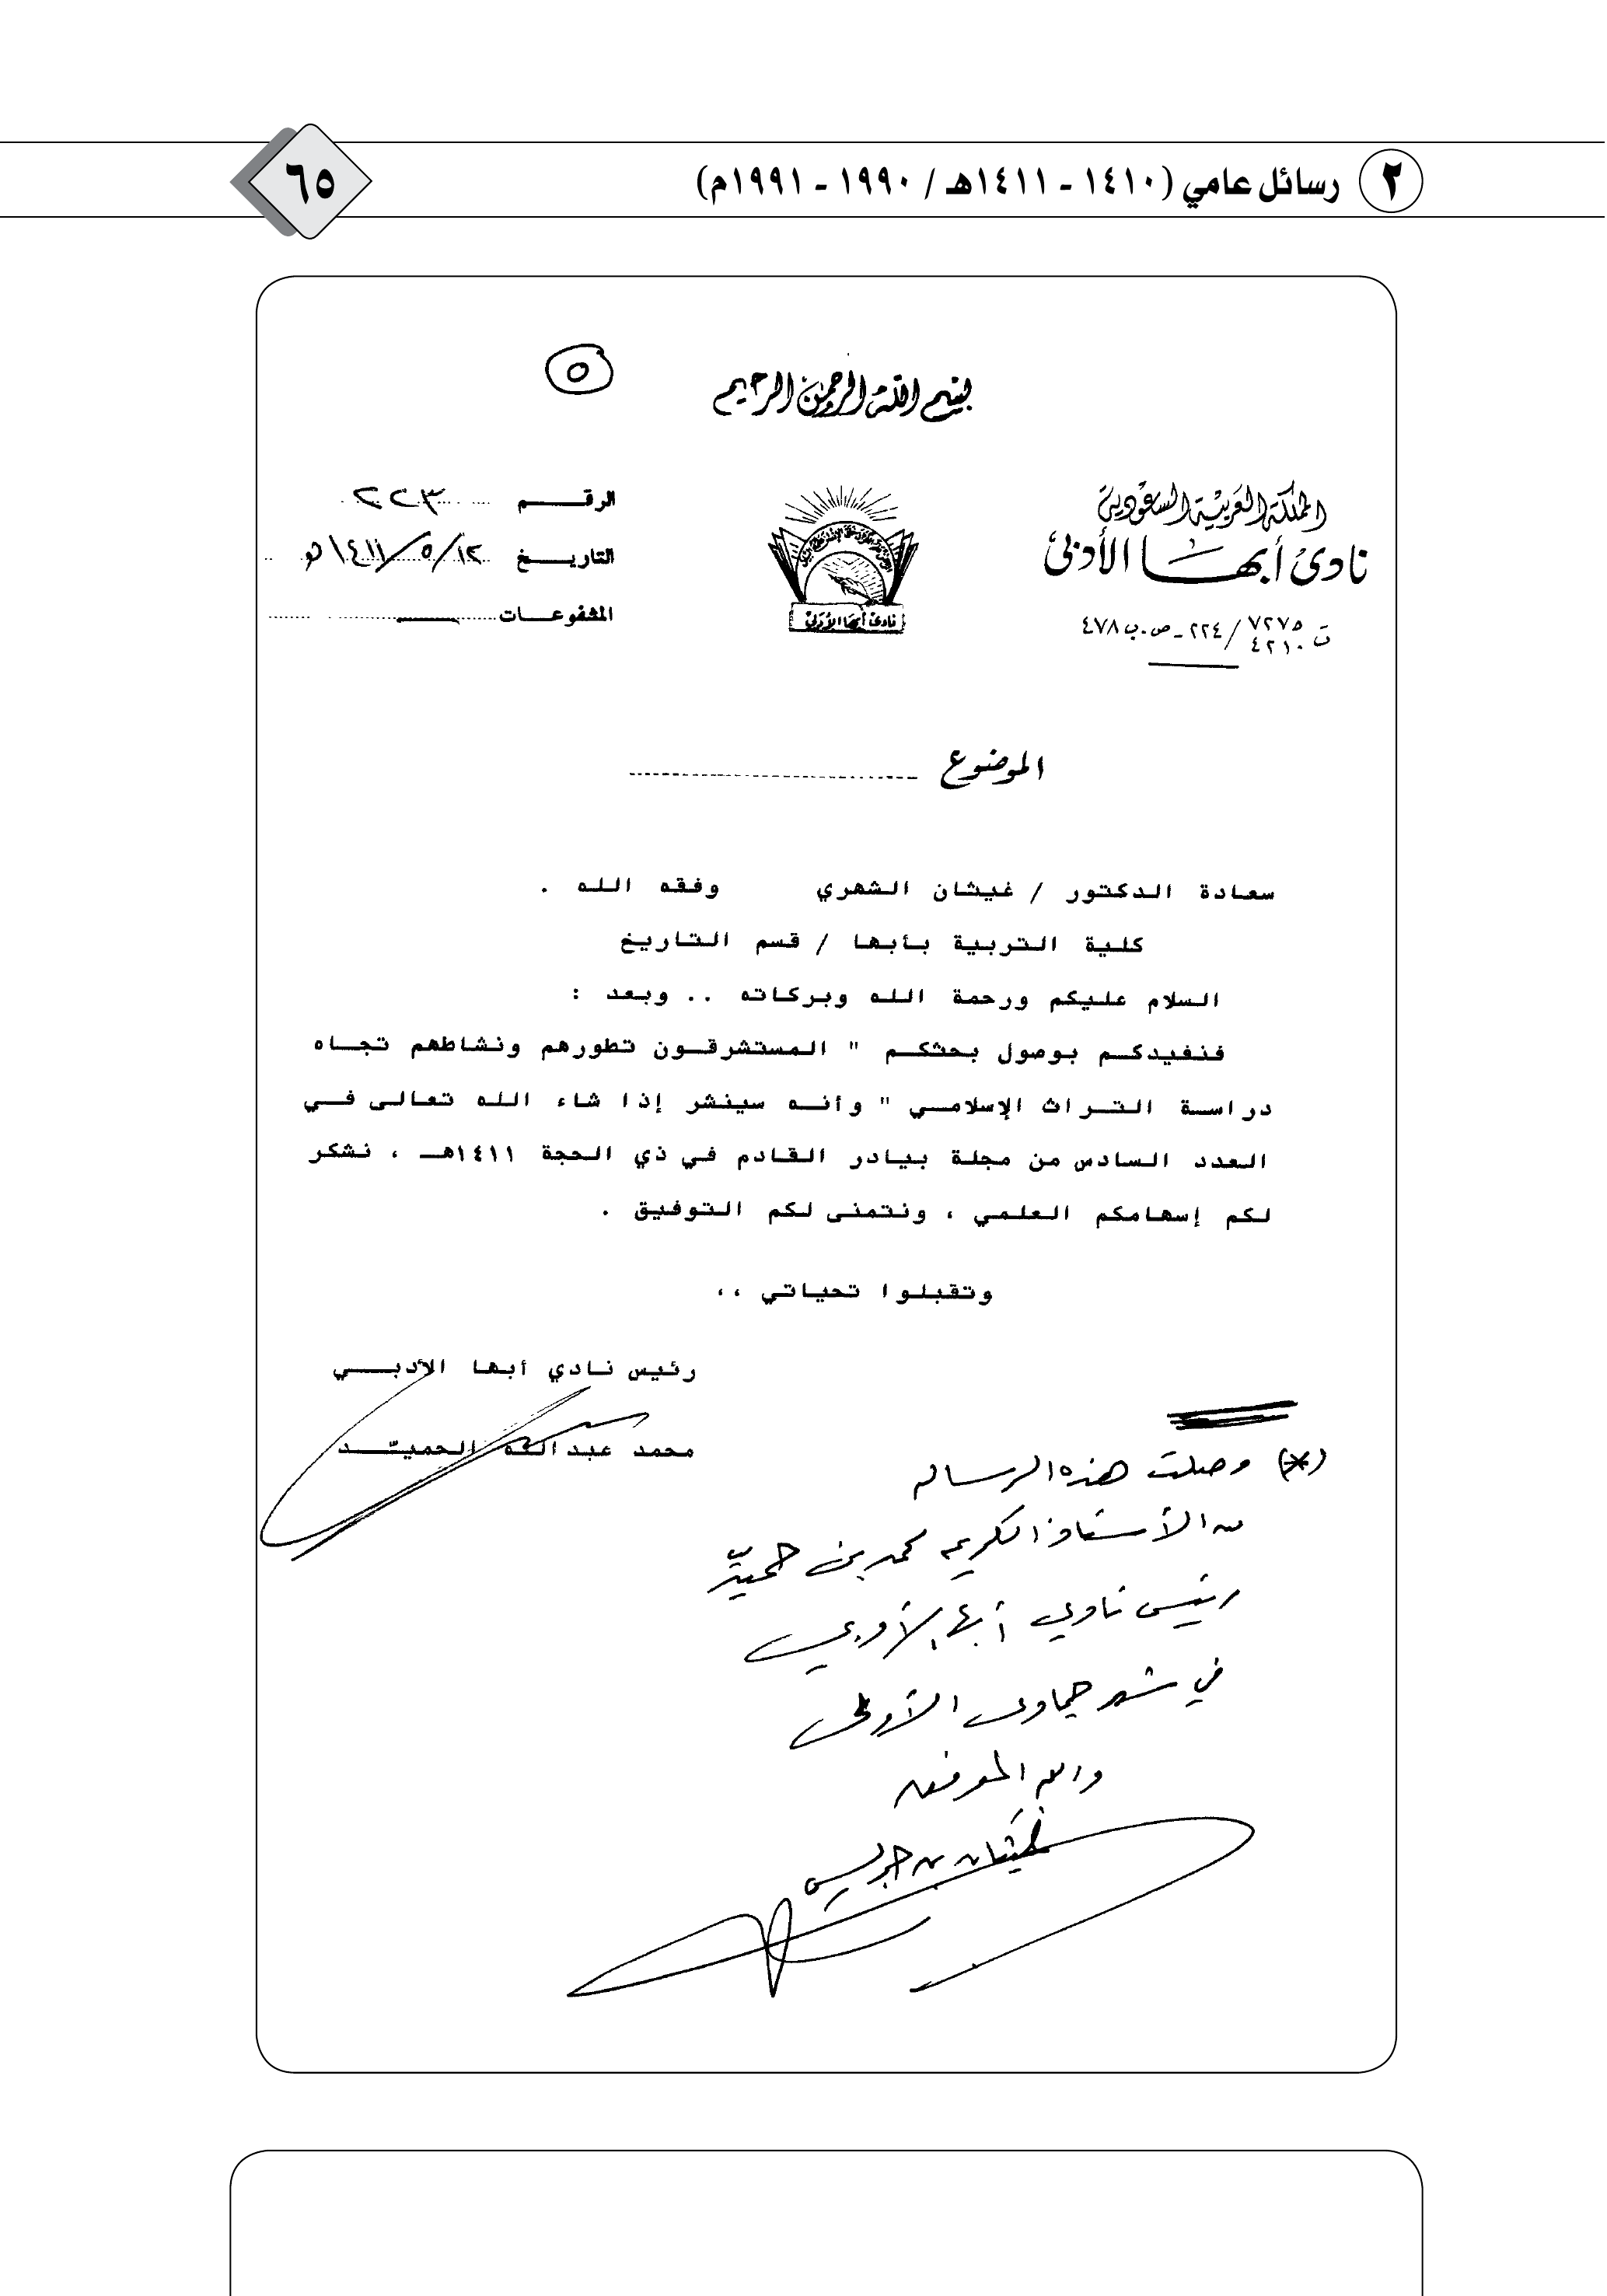 ٢ رسائل عامي (١٤١٠ - ١٤١١هـ / ١٩٩٠ - ١٩٩١م)
٦٥
٥
بسم الله الرحمن الرحيم
المملكة العربية السعودية
نادي أبها الأدبي
ت ٧٢٧٥ / ٢٢٤ - ص.ب ٤٧٨
٤٢١٠
نادي أبها الأدبي
الرقــــم ٢٢٣
التاريــــخ ١٢/٥/١٤١١هـ
المشفوعـــات
الموضوع
سعادة الدكتور / غيثان الشهري وفقه الله .
كلية التربية بأبها / قسم التاريخ
السلام عليكم ورحمة الله وبركاته .. وبعد :
فنفيدكــم بوصول بحثكــم " المستشرقــون تطورهم ونشاطهم تجــاه
دراســة التــراث الإسلامــي " وأنــه سينشر إذا شاء الله تعالى فــي
العدد السادس من مجلة بيادر القادم في ذي الحجة ١٤١١هــ ، نشكر
لكم إسهامكم العلمي ، ونتمنى لكم التوفيق .
وتقبلوا تحياتي ،،
رئيس نادي أبها الأدبـــي
محمد عبدالله الحميّـــد
(*) وصلت هذه الرساله
من الأستاذ الكريم محمد بن حميّد
رئيس نادي أبها الأدبي
في شهر جمادى الأولى
والله الموفق
غيثان بن جريس